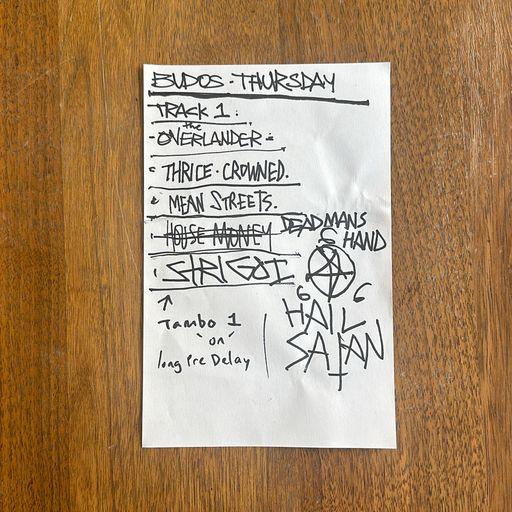 BUDOS · THURSDAY
TRACK 1:
the
- OVERLANDER -
· THRICE · CROWNED.
· MEAN STREETS.
· HOUSE MONEY DEADMANS
HAND
· STRIGOI
6 6 6
HAIL
SATAN
Tambo 1
"on"
long Pre Delay